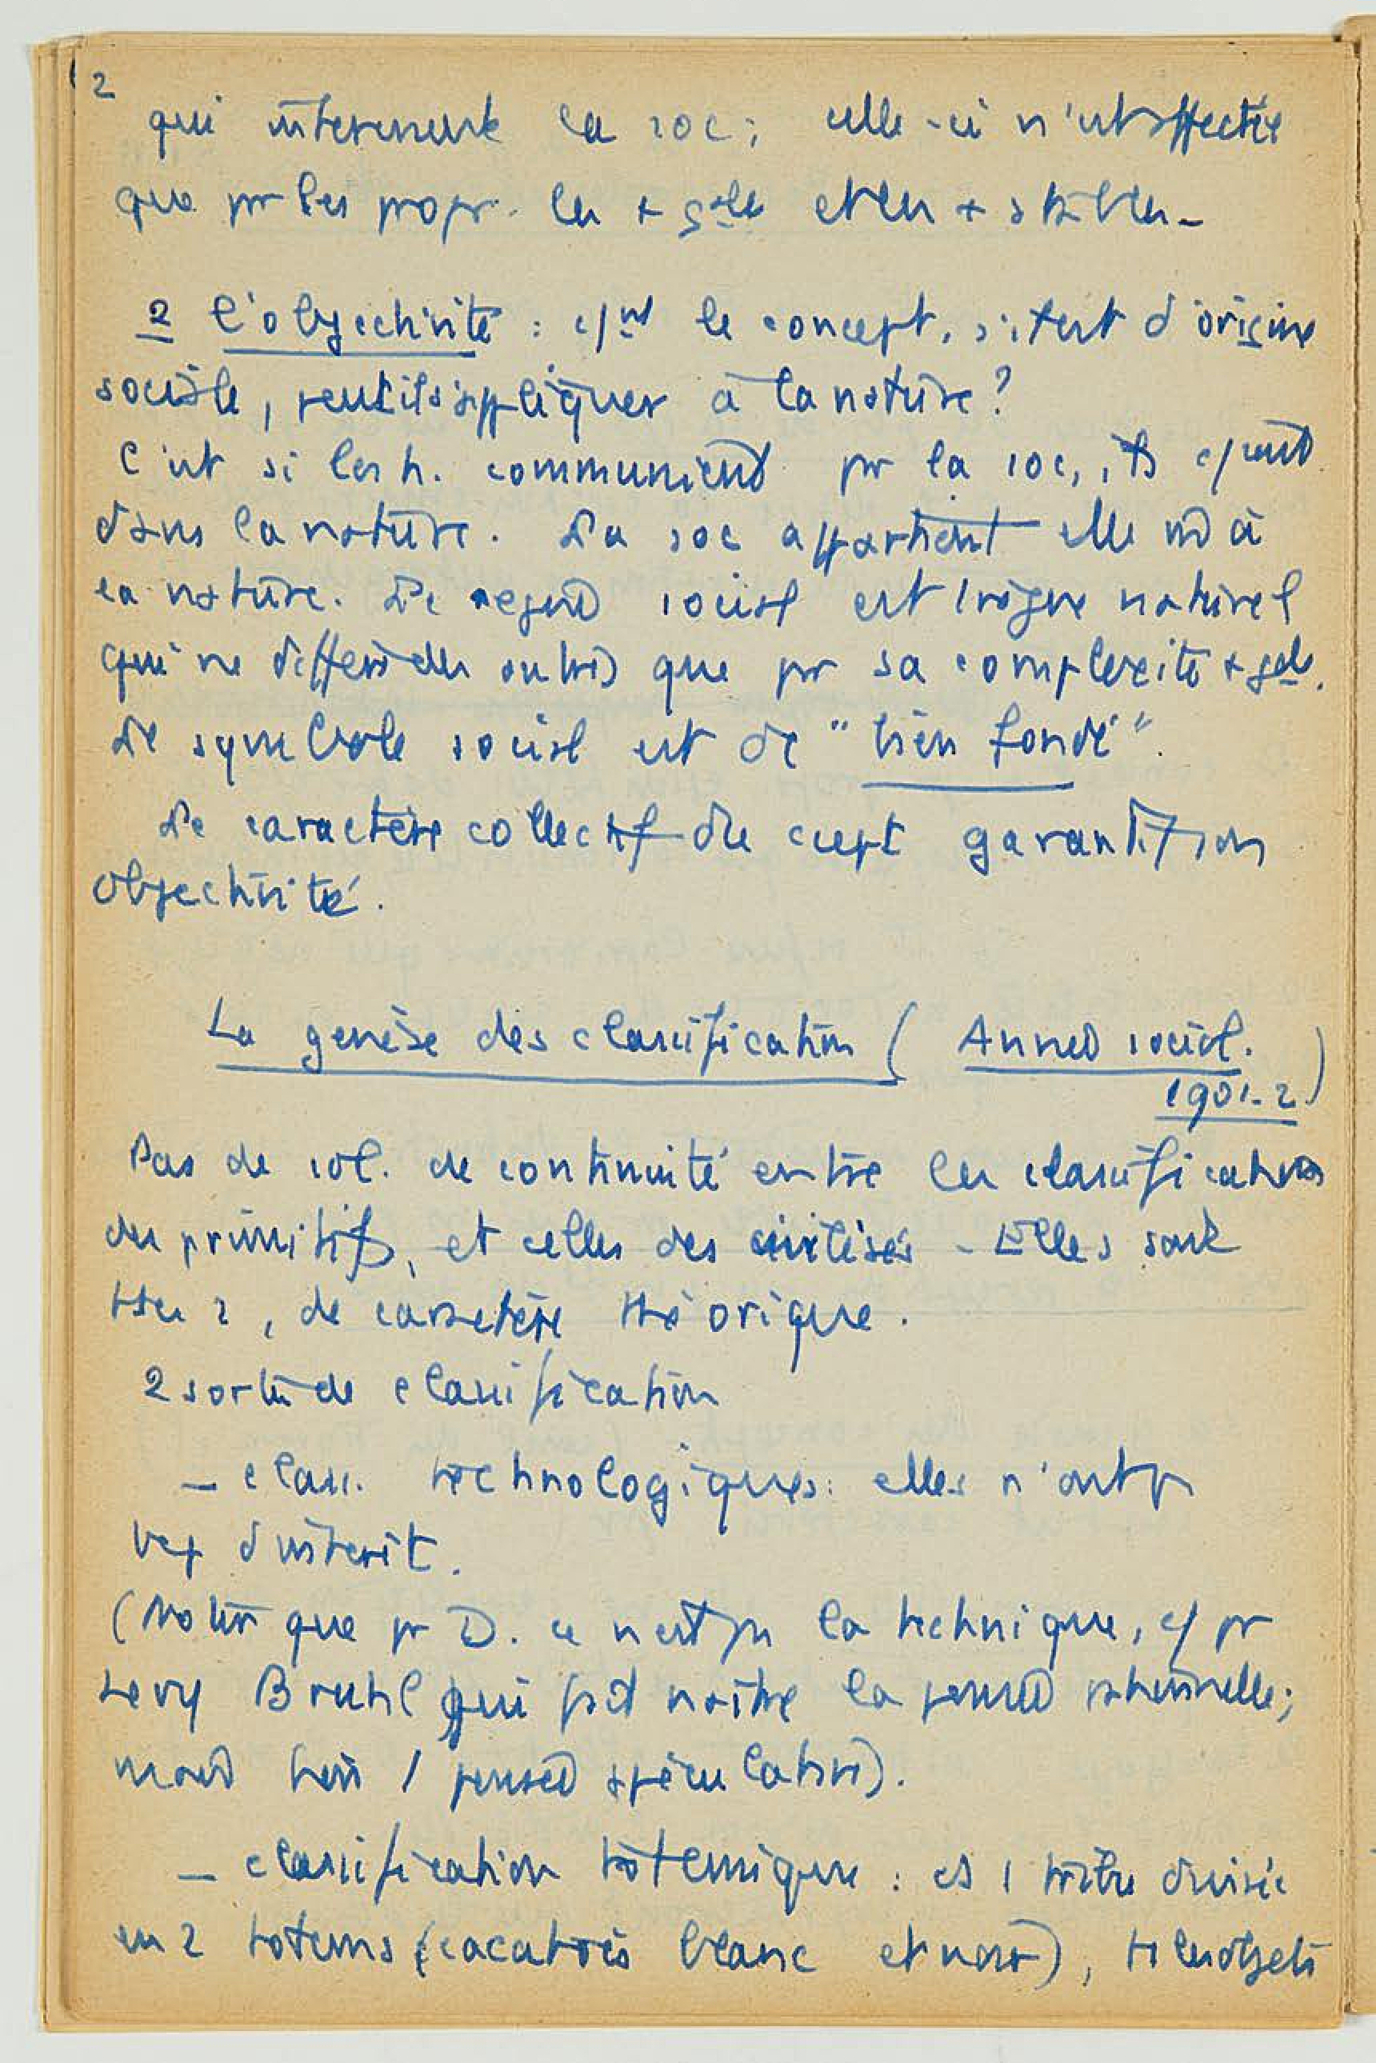 2
qui intéressent la soc ; celle-ci n'est affectée
que pr les propr. les + gales et les + stables -
2 l'objectivité : c/nt le concept, s'il est d'origine
sociale, peut il s'appliquer à la nature ?
C'est si les h. communient pr la soc, ils c/
dans la nature. La soc appartient elle m à
la nature. Le regne social est 1 règne naturel
qui ne diffère des autres que pr sa complexité + gde.
Le symbole social est de "bien fondé".
Le caractère collectif du cept garantit son
objectivité.
La genèse des classification ( Année sociol.
1901-2 )
Pas de sol. de continuité entre les classifications
des primitifs, et celles des civilisés - Elles sont
ttes 2, de caractère théorique.
2 sortes de classification
- class. technologiques : elles n'ont pas
d'intérêt.
(Noter que pr D. ce n'est pas la technique, c/ pr
Levy Bruhl qui fait naître la pensée rationnelle ;
mais bien 1 pensée spéculative).
- classification totemique : ds 1 tribu divisée
en 2 totems (cacatoès blanc et noir), ts les objets